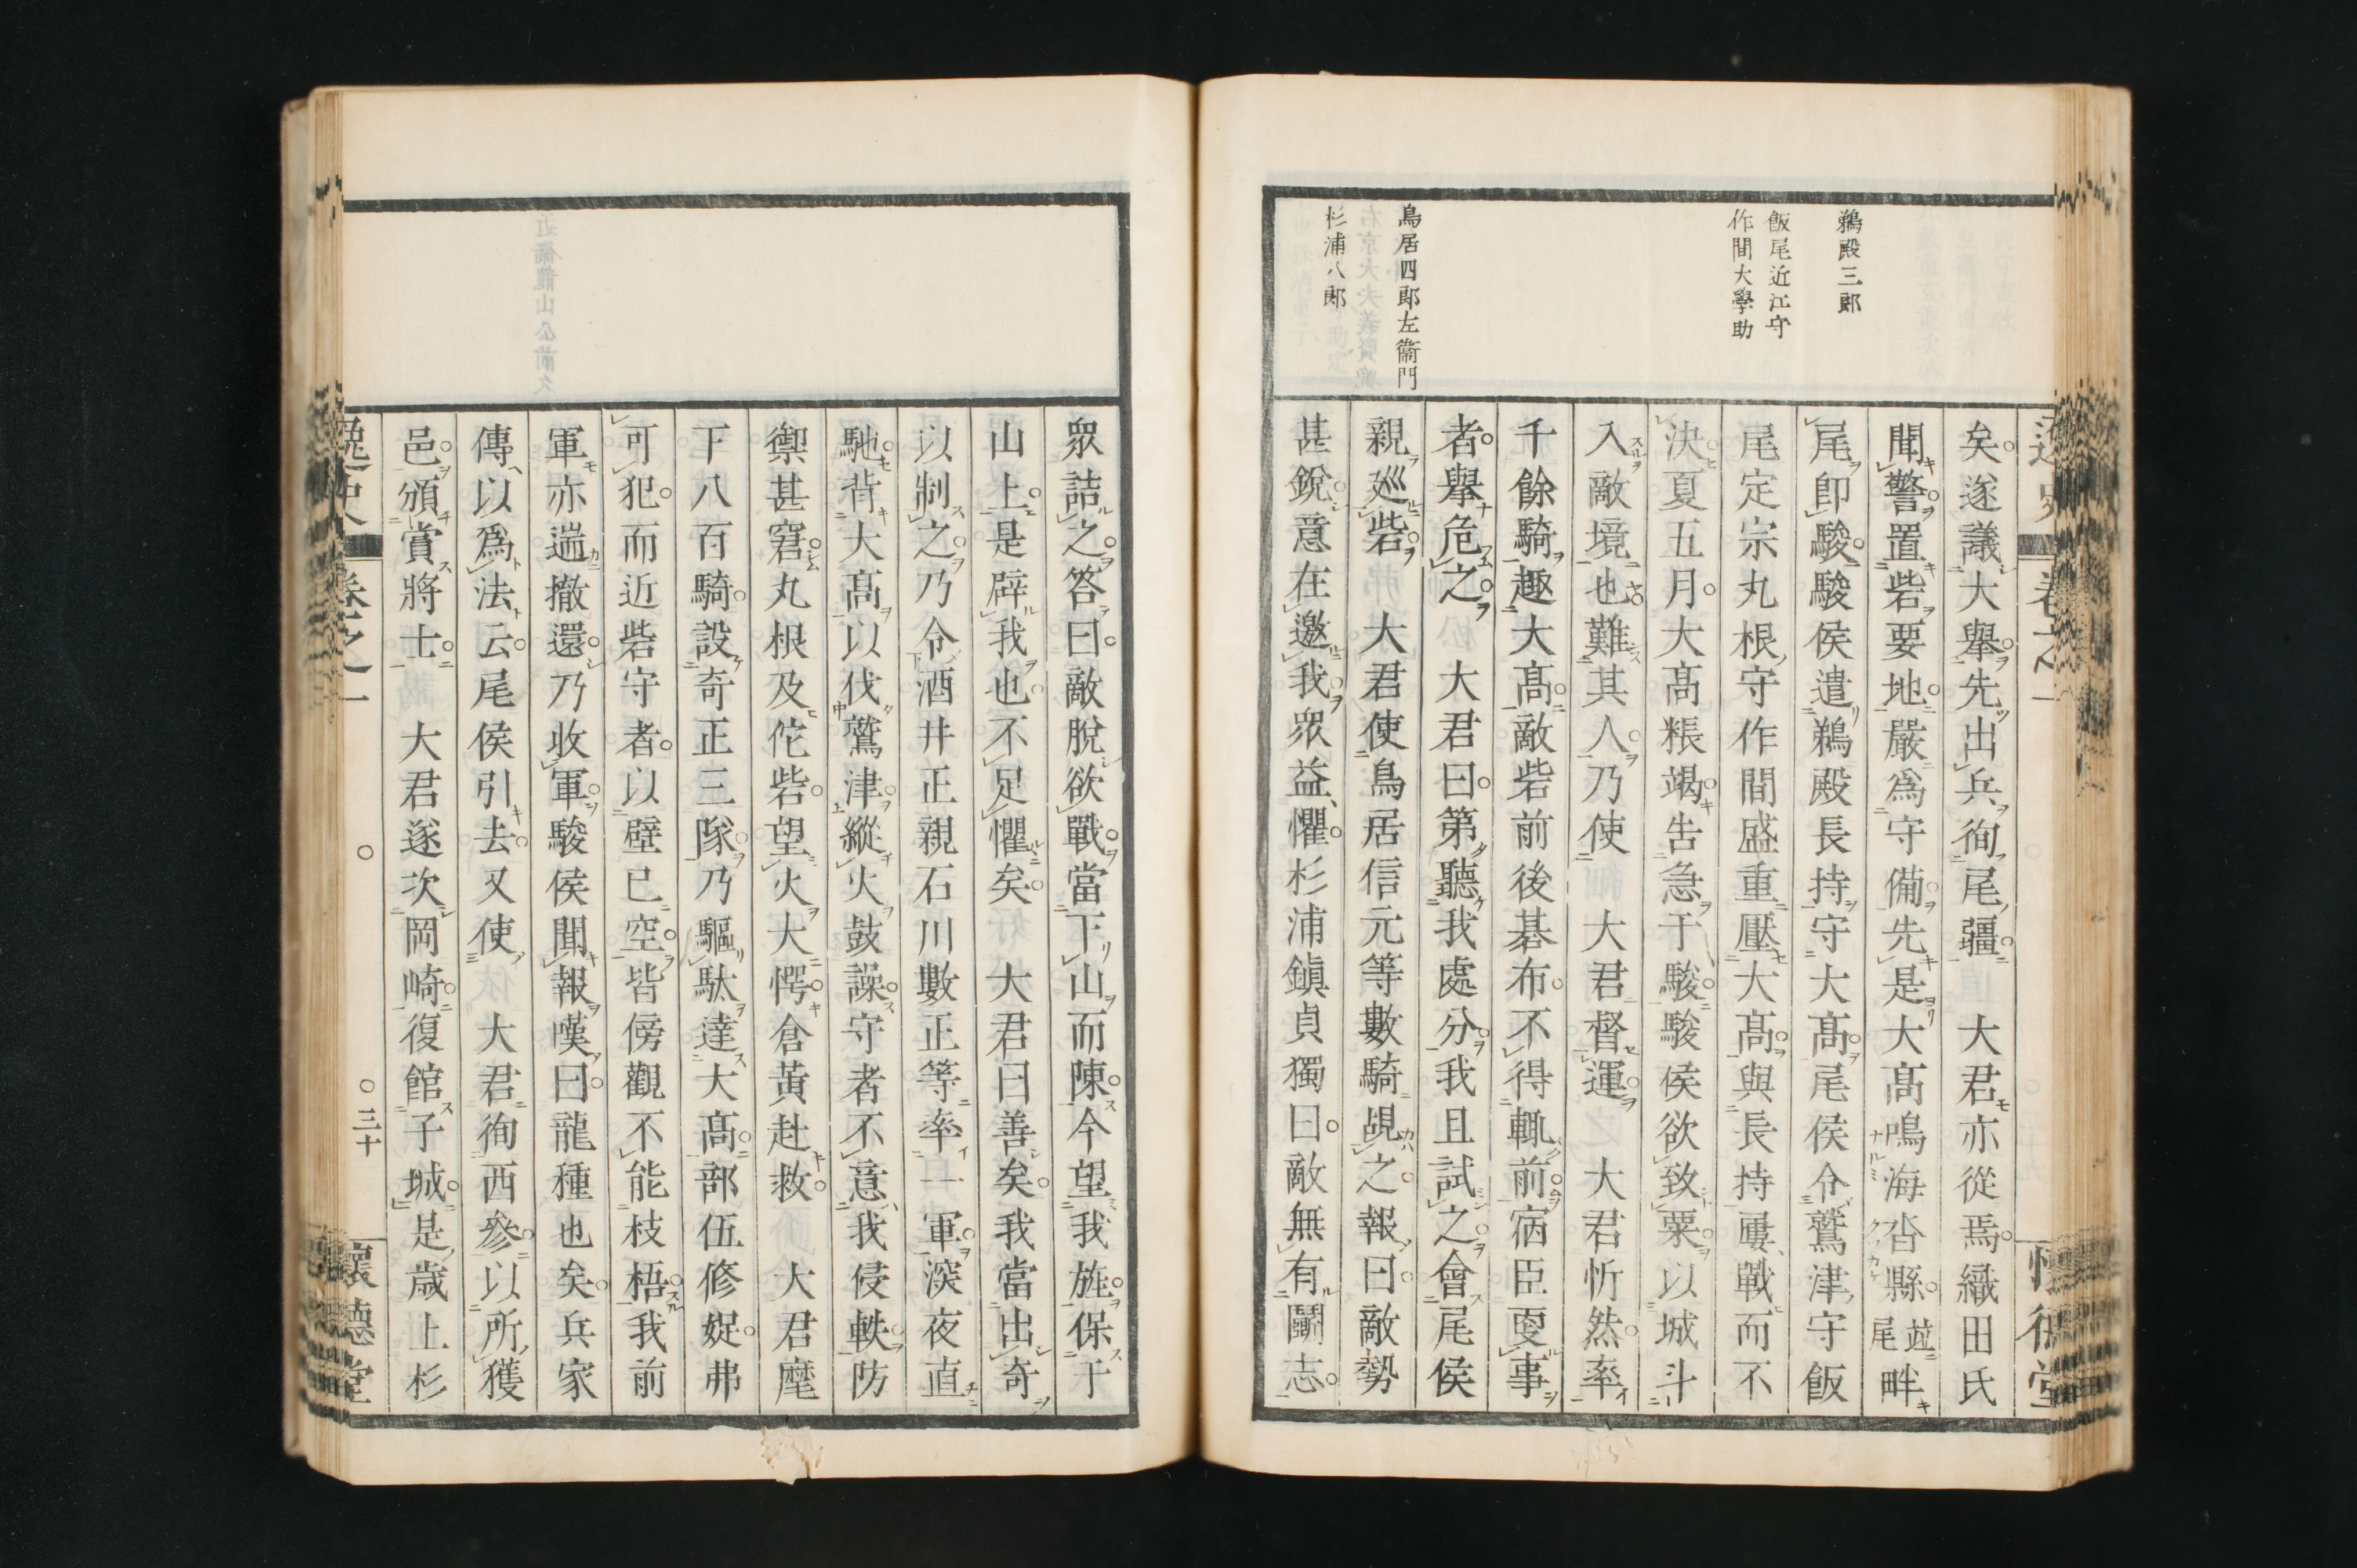 鵜殿三郎
飯尾近江守
作間大學助
鳥居四郎左衞門
杉浦八郎
矣遂議大舉先出兵徇尾疆　大君亦從焉織田氏
聞警置砦要地嚴爲守備先是大髙鳴海沓縣竝尾畔
尾卽駿駿侯遣鵜殿長持守大髙尾侯令鷲津守飯
尾定宗丸根守作間盛重壓大髙與長持屢戰而不
決夏五月大髙粻竭告急于駿駿侯欲致粟以城斗
入敵境也難其人乃使　大君督運　大君忻然率
千餘騎趣大髙敵砦前後碁布不得輒前病臣更事
者舉危之　大君曰第聽我處分我且試之會尾侯
親巡砦　大君使鳥居信元等數騎覘之報曰敵勢
甚銳意在邀我眾益懼杉浦鎭貞獨曰敵無有鬬志
眾詰之答曰敵脫欲戰當下山而陳今望我旌保于
山上是辟我也不足懼矣　大君曰善矣我當出奇
以制之乃令酒井正親石川數正等率一軍深夜直
馳背大髙以伐鷲津縱火鼓譟守者不意我侵軼防
禦甚窘丸根及佗砦望火大愕倉黃赴救　大君麾
下八百騎設奇正三隊乃驅馱達大髙部伍修娖弗
可犯而近砦守者以壁已空皆傍觀不能枝梧我前
軍亦遄撤還乃收軍駿侯聞報嘆曰龍種也矣兵家
傳以爲法云尾侯引去又使　大君徇西參以所獲
邑頒賞將士　大君遂次岡崎復館子城是歲上杉
逸史　卷之一　三十　懷德堂